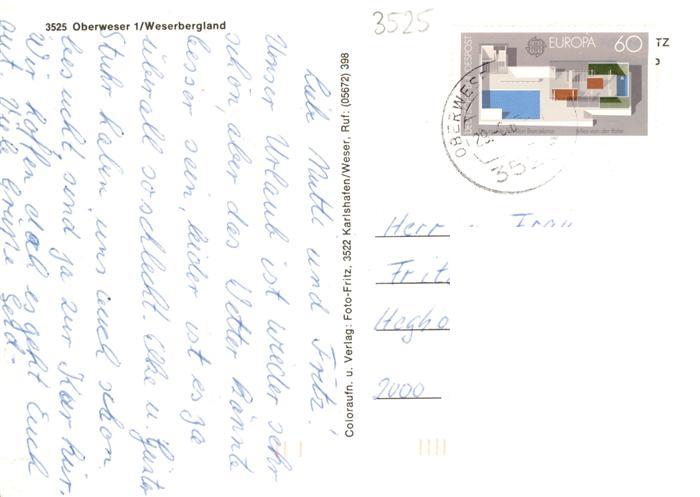 3525 Oberweser 1/Weserbergland
Liebe Mutti und Fritz!
Unser Urlaub ist wieder sehr
schön, aber das Wetter könnte
besser sein, leider ist es ja
überall so schlecht. Elke u. Günter
Stuhr haben uns auch schon
besucht sind ja zur Kur hier.
Wir hoffen daß es geht Euch
gut. Viele Grüße
Gerd.
Coloraufn. u. Verlag: Foto-Fritz, 3522 Karlshafen/Weser, Ruf: (05672) 398
3525
EUROPA 60
BUNDESPOST
Barcelona
Mies van der Rohe
OBERWES
29.
352
TZ
Herr
Frau
Frit
Hegho
2000